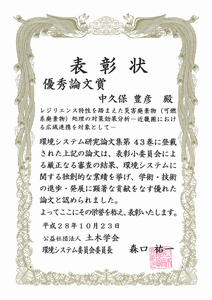 表彰状
優秀論文賞
中久保 豊彦 殿
レジリエンス特性を踏まえた災害廃棄物（可燃
系廃棄物）処理の対策効果分析－近畿圏におけ
る広域連携を対象として－
環境システム研究論文集第43巻に登載
された上記の論文は、表彰小委員会によ
る厳正なる審査の結果、環境システムに
関する独創的な業績を挙げ、学術・技術
の進歩・発展に顕著な貢献をなす優れた
論文と認められました。
よってここにその栄誉を称え、表彰いたします。
平成28年10月23日
公益社団法人 土木学会
環境システム委員会委員長 森口 祐一